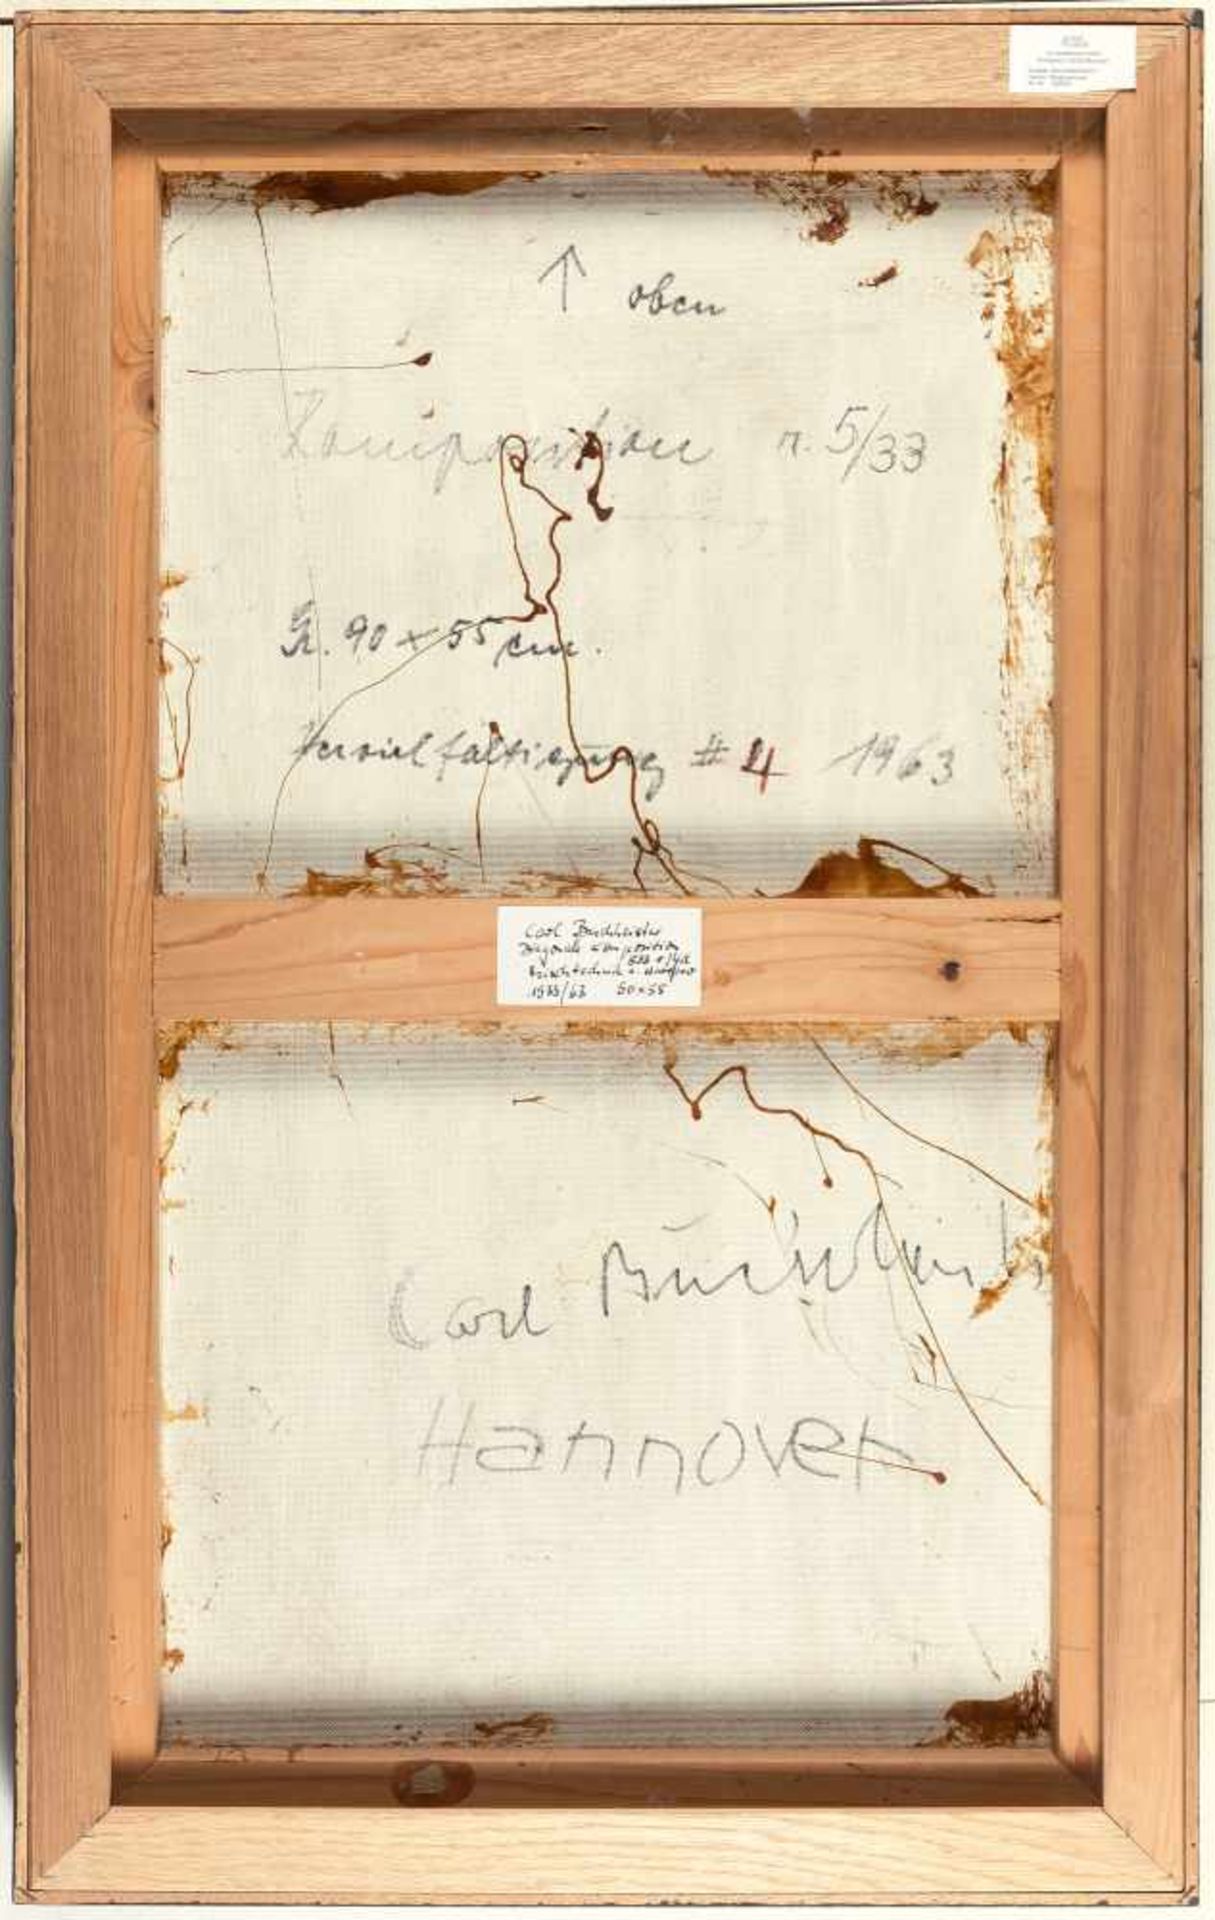 ↑ oben
Komposition n. 5/33
Gr. 90 x 55 cm.
Vervielfältigung # 4 1963
Carl Buchheister
Diagonale Komposition
1933/63 90 x 55
Carl Buchheister
Hannover